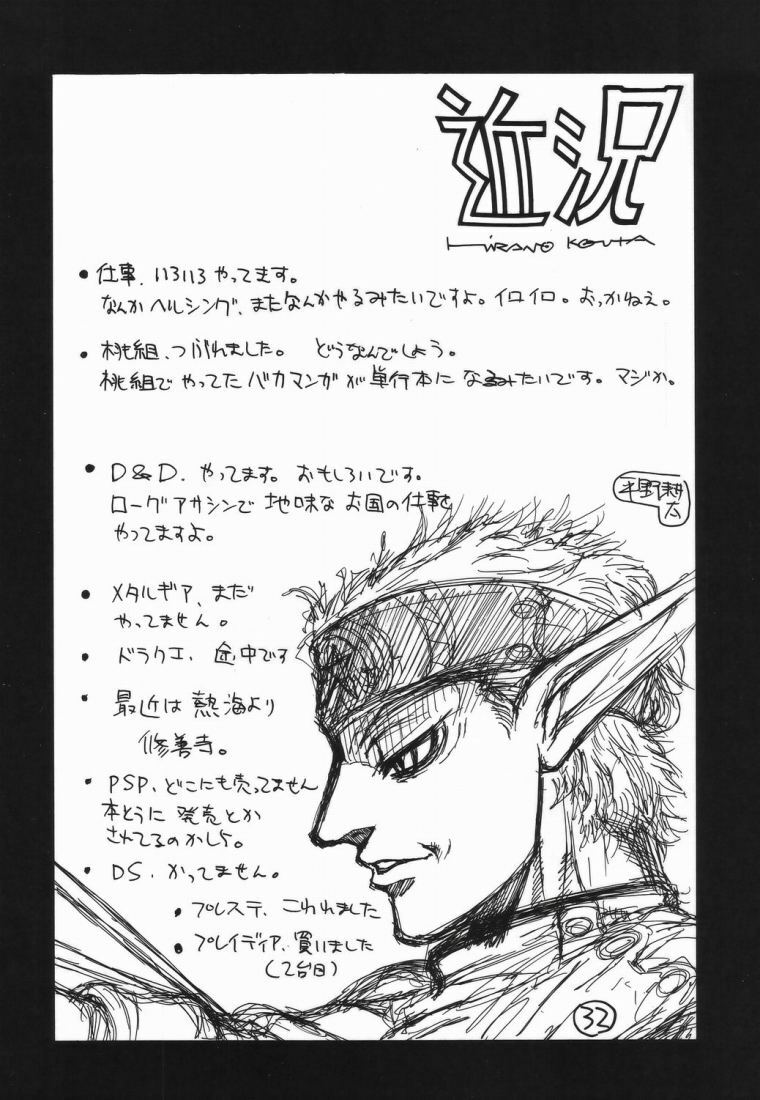 近況
HIRANO KOUTA
• 仕事、いろいろやってます。
なんかヘルシング、またなんかやるみたいですよ。イロイロ。おっかねえ。
• 桃組、つぶれました。 どうなんでしょう。
桃組でやってたバカマンガが単行本になるみたいです。マジか。
平野耕
太
• D&D、やってます。おもしろいです。
ローグアサシンで地味なお国の仕事を
やってますよ。
• メタルギア、まだ
やってません。
• ドラクエ、途中です
• 最近は熱海より
修善寺。
• PSP、どこにも売ってません
本とうに発売とか
されてるのかしら。
• DS、かってません。
• プレステ、こわれました
• プレイディア、買いました
(2台目)
32